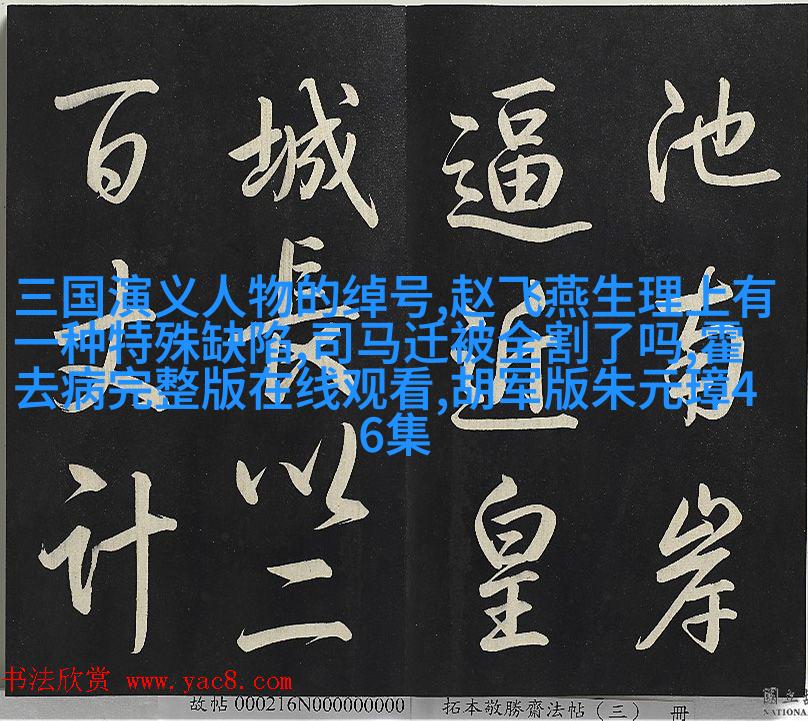 池南岸
逼近皇
城長以二
百丈計
三国演义人物的绰号,赵飞燕生理上有
一种特殊缺陷,司马迁被全割了吗,霍
去病完整版在线观看,胡军版朱元璋4
6集
书法欣赏 www.yac8.com
故帖 000216N000000000 拓本敬勝齋法帖（三） 冊
國立
NATIONA